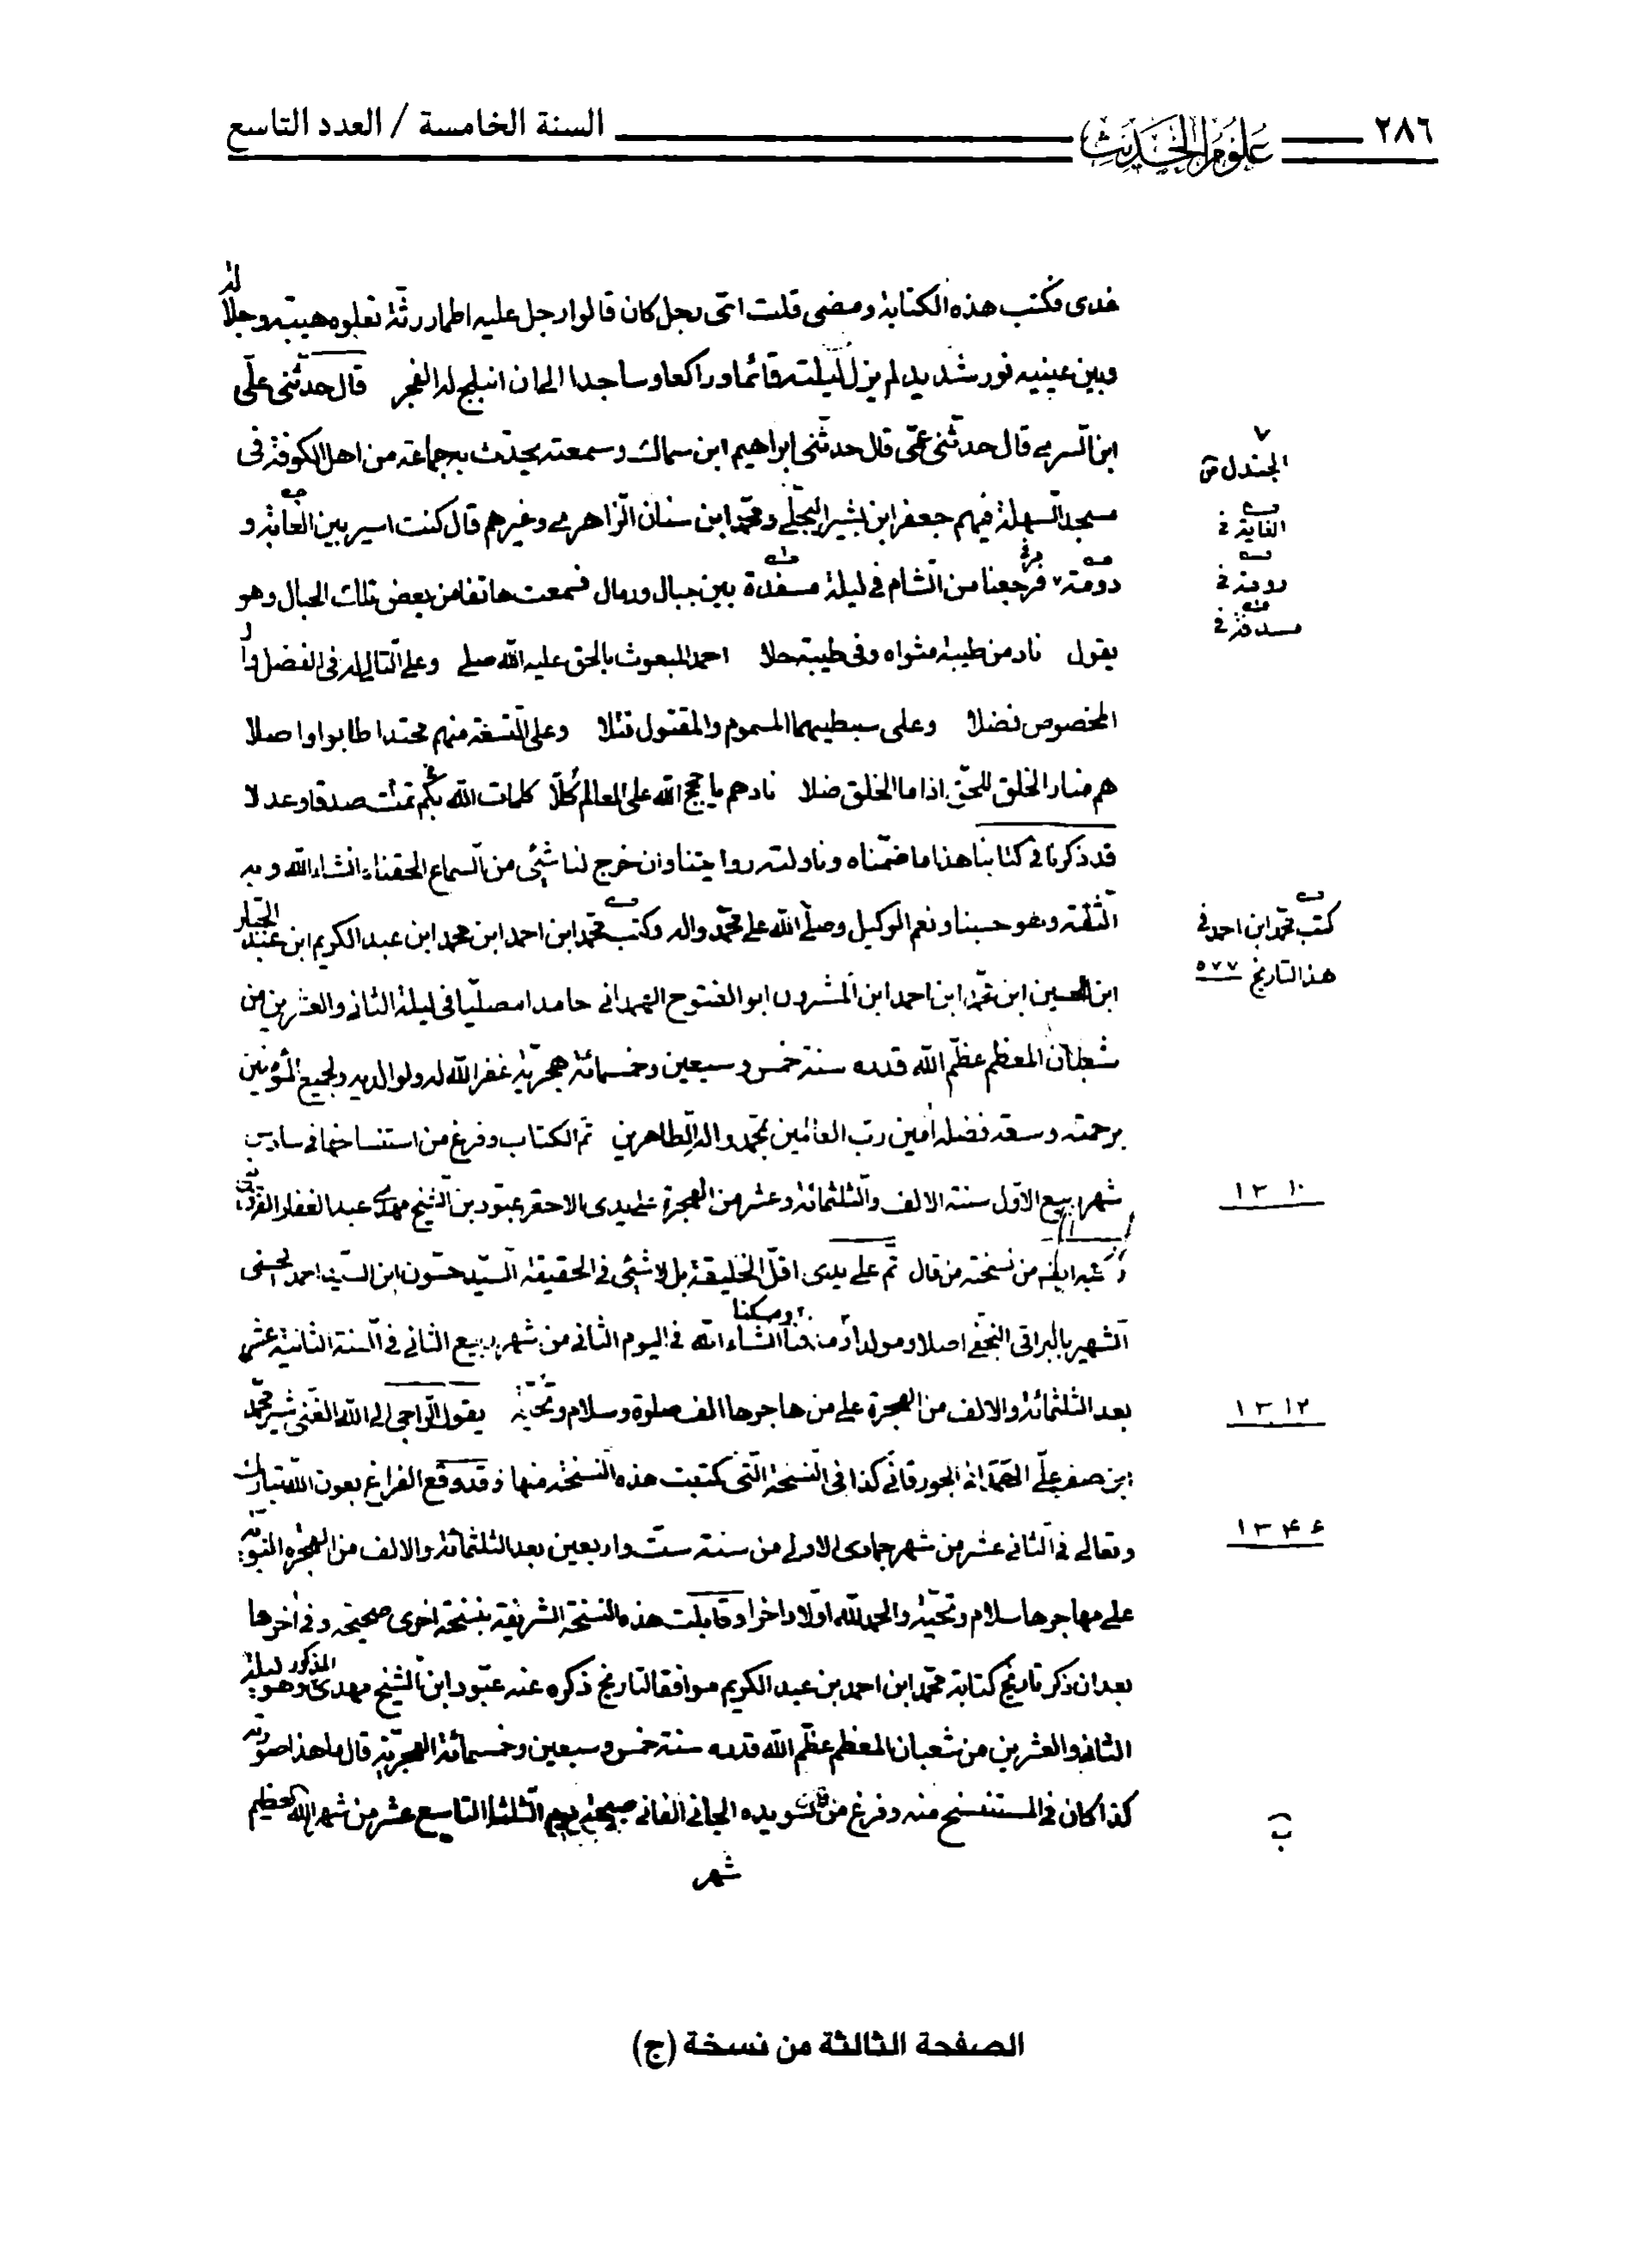 ٢٨٦ علوم الحديث السنة الخامسة / العدد التاسع
غدى فكتب هذه الكتابة ومضى قلت اتى رجل كان قالوا رجل عليه اطمار رثة تعلوه هيبة وجلالة
وبين عينيه نور شديد لم يزل ليلته قائما وراكعا وساجدا الى ان انبلج له الفجر قال حدثنى علّى
ابن السرى قال حدثنى عمّى قال حدثنى ابراهيم ابن سماك وسمعته يحدّث به جماعة من اهل الكوفة فى
الجندل
مسجد السهلة فيهم جعفر ابن بشير البجلّي ومحمّد ابن سنان الزّاهرى وغيرهم قال كنت اسير بين الغابة و
الغاية
دومة فرجعنا من الشام في ليلة مسفدة بين جبال ورمال فسمعت هاتفا من بعض تلك الجبال وهو
رومة
مسدفة
يقول ناد من طيبة مثواه وفى طيبة حلا احمد المبعوث بالحق عليه الله صلى وعلى التالي له فى الفضل وا
المخصوص فضلا وعلى سبطيهما المسموم والمقتول قتلا وعلى التسعة منهم محتدا طابوا واصلا
هم منار الخلق للحقّ اذا ما الخلق ضلا نادهم يا حجج الله على العالم كُلّا كلمات الله بكم تمّت صدقا وعدلا
قد ذكرنا في كتابنا هذا ما ضمّناه وناولته روايتنا وان خرج لنا شئ من السماع الحقناه انشاء الله وبه
الثقة وهو حسبنا ونعم الوكيل وصلّى الله على محمّد واله وكتب محمّد ابن احمد ابن محمد ابن عبد الكريم ابن عبد الجبار
كتب محمّد ابن احمد في
هذا التاريخ ٥٧٧
ابن الحسين ابن محمّد ابن احمد ابن ابو الفتوح الهمدانى حامدا مصلّيا فى ليلة الثانى والعشرين من
شعبان المعظم عظّم الله قدره سنة خمس وسبعين وخمسمائة هجريّة غفر الله له ولوالديه ولجميع المؤمنين
برحمته وسعة فضله امين ربّ العالمين بمحمّد واله الطاهرين تم الكتاب وفرغ من استنساخها في سادس
شهر ربيع الاوّل سنة الالف والثلثمائة وعشر من الهجرة على يدى الاحقر عبّود بن الشيخ مهدى عبد الغفار
١٣١٠
من نسخته من قال تم على يدى اقلّ الخليقة بل لا شئ في الحقيقة السيّد حسّون ابن السيّد احمد الحسنى
الشهير بالبراقي النجفي اصلا ومولدا ومسكنا ومدفنا انشاء الله في اليوم الثاني من شهر ربيع الثاني في السنة الثانية عشر
بعد الثلثمائة والالف من الهجرة على من هاجرها الف صلوة وسلام وتحيّة يقول الرّاجى الى الله الغنى شير محمّد
١٣١٢
ابن صفر علّى الهمدانى الجورقاني كذا فى النسخة التّى كتبت هذه النسخة منها وقد وقع الفراغ بعون الله تبارك
وتعالى في الثانى عشر من شهر جمادى الاولى من سنة ستّ واربعين بعد الثلثمائة والالف من الهجرة النبويّة
١٣٤٦
على مهاجرها سلام وتحيّة والحمد لله اولا واخرا وقابلت هذه النسخة الشريفة بنسخة اخرى صحيحة وفي اخرها
بعد ان ذكر تاريخ كتابة محمّد ابن احمد بن عبد الكريم موافقا لتاريخ ذكره عنه عبّود ابن الشيخ مهدى المذكور وهو ليلة
الثانى والعشرين من شعبان المعظم عظّم الله قدره سنة خمس وسبعين وخمسمائة الهجريّة قال ما هذا صورته
كذا كان في المستنسخ منه وفرغ من تسويده الجانى الفانى صبيحة يوم الثلثا التاسع عشر من شهر الله العظيم
شهر
الصفحة الثالثة من نسخة (ج)